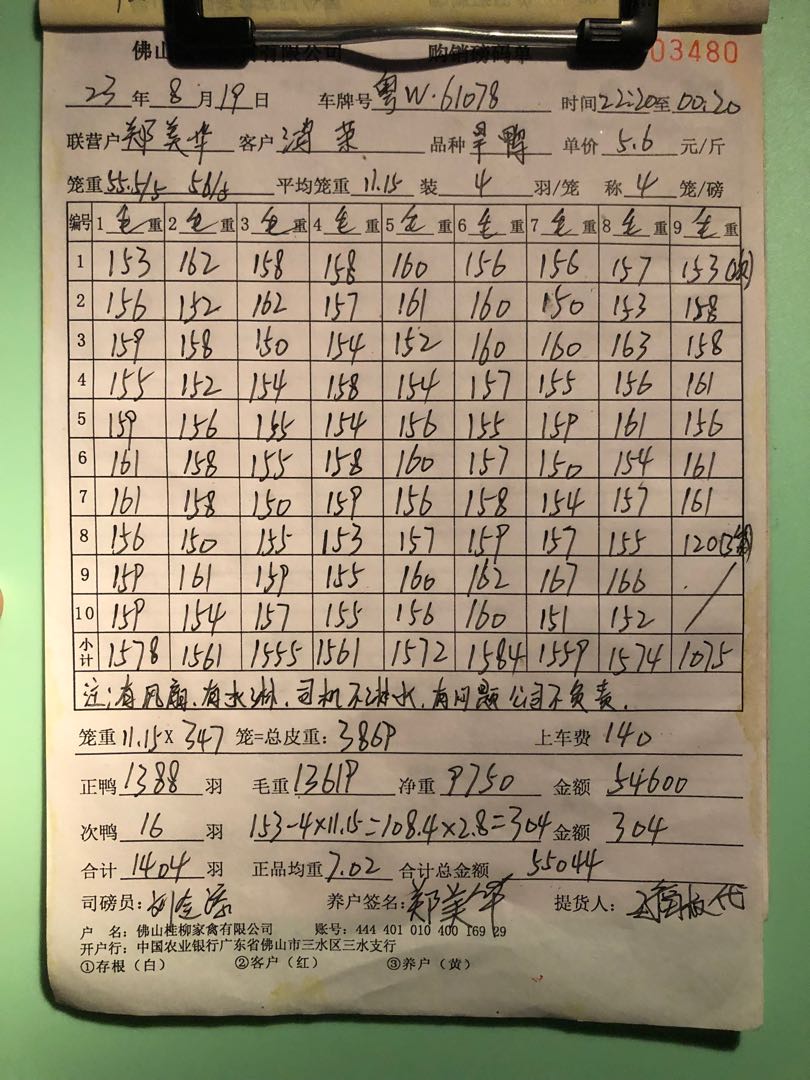 佛山 有限公司 购销磅码单 03480
23年8月19日 车牌号粤W·61078 时间22:20至00:20
联营户郑美华 客户 品种旱鸭 单价5.6元/斤
笼重55.5/5 56/5 平均笼重11.15 装4羽/笼 称4笼/磅
编号 1毛重 2毛重 3毛重 4毛重 5毛重 6毛重 7毛重 8毛重 9毛重
1 153 162 158 158 160 156 156 157 153
2 156 152 162 157 161 160 150 153 158
3 159 158 150 154 152 160 160 163 158
4 155 152 154 158 154 157 155 156 161
5 159 156 155 154 156 155 159 161 156
6 161 158 155 158 160 157 150 154 161
7 161 158 150 159 156 158 154 157 161
8 156 150 155 153 157 159 157 155 120
9 159 161 159 155 160 162 167 166
10 159 154 157 155 156 160 151 152
小计 1578 1561 1555 1561 1572 1584 1559 1574 1075
注:有风扇、有水淋,司机不淋水,有问题公司不负责.
笼重11.15×347笼=总皮重:3869 上车费140
正鸭1388羽 毛重13619 净重9750 金额54600
次鸭16羽 153-4×11.15=108.4×2.8=304 金额304
合计1404羽 正品均重7.02 合计总金额55044
司磅员: 养户签名:郑美华 提货人:
户 名:佛山桂柳家禽有限公司 账号:444 401 010 400 169 29
开户行:中国农业银行广东省佛山市三水区三水支行
①存根(白) ②客户(红) ③养户(黄)